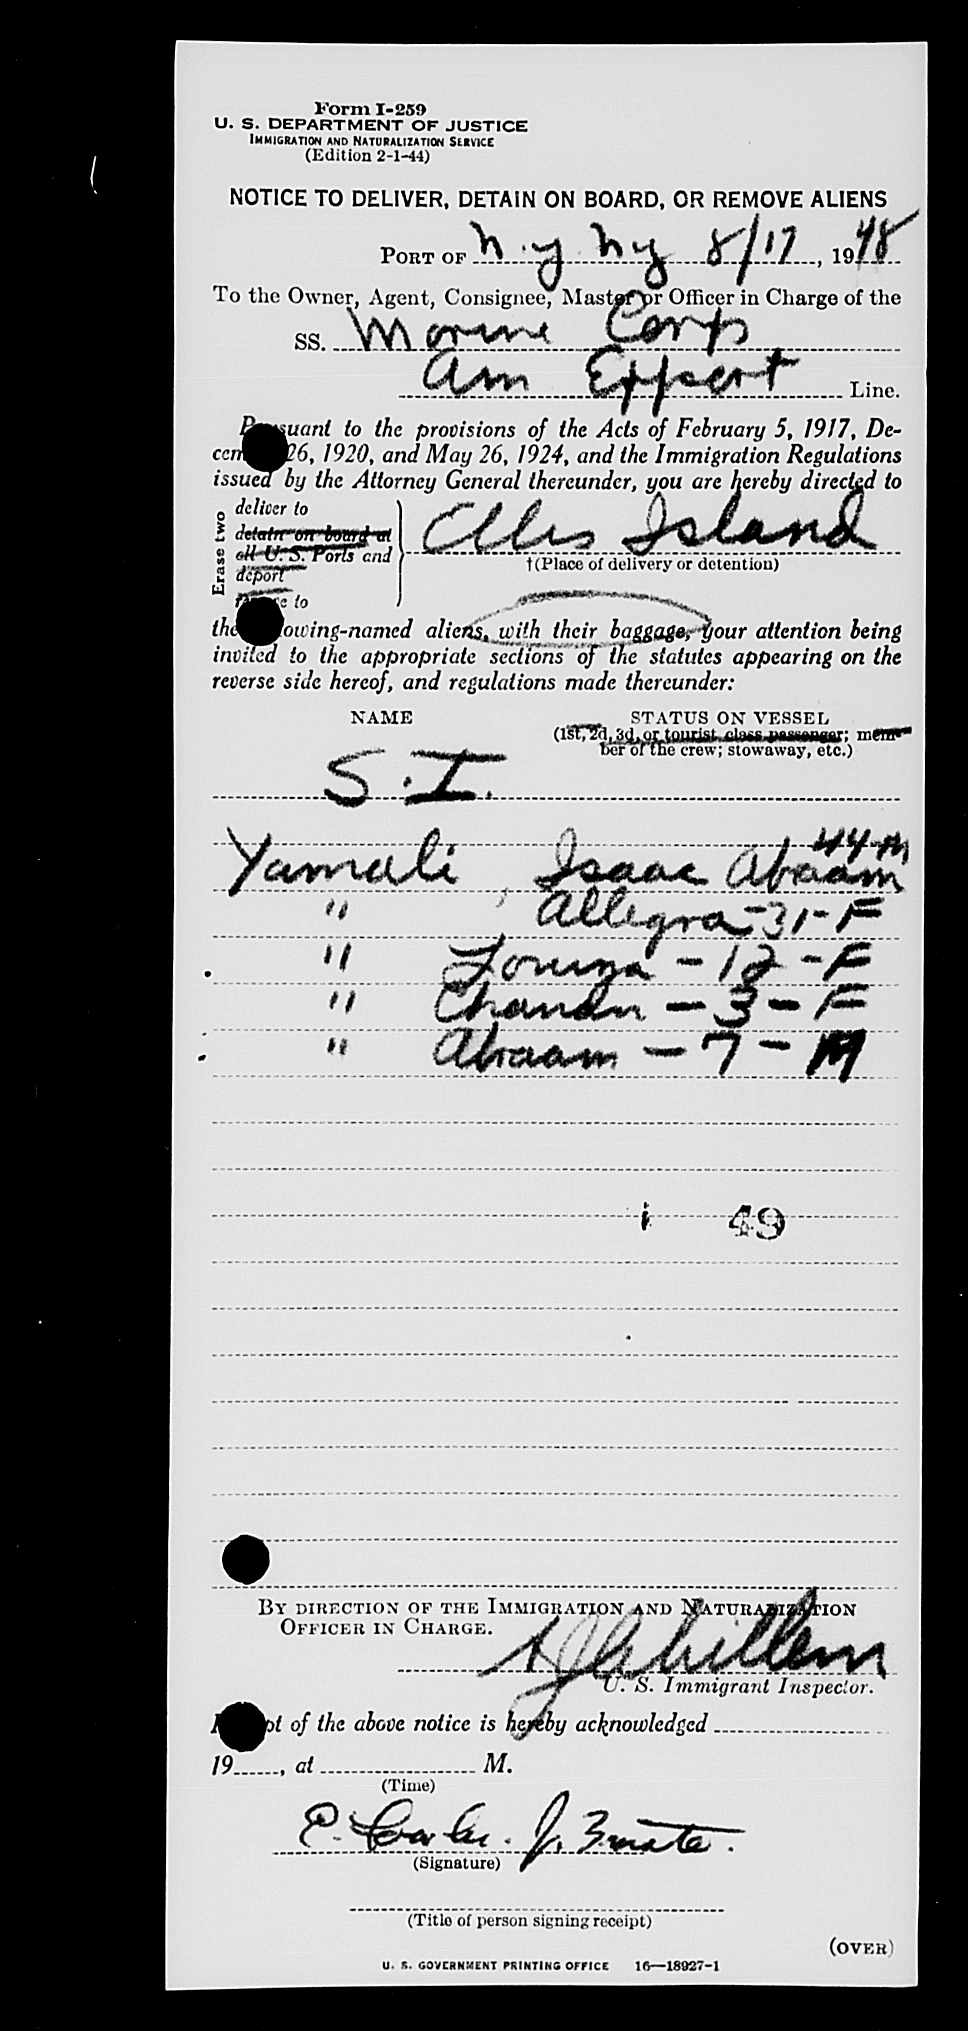 Form I-259
U. S. DEPARTMENT OF JUSTICE
IMMIGRATION AND NATURALIZATION SERVICE
(Edition 2-1-44)
NOTICE TO DELIVER, DETAIN ON BOARD, OR REMOVE ALIENS
PORT OF N.Y. N.Y 8/17, 1948
To the Owner, Agent, Consignee, Master or Officer in Charge of the
SS. Marine Carp
Am Export Line.
Pursuant to the provisions of the Acts of February 5, 1917, De-
cem 26, 1920, and May 26, 1924, and the Immigration Regulations
issued by the Attorney General thereunder, you are hereby directed to
Erase two
deliver to
detain on board at
all U. S. Ports and
deport
to
Ellis Island
†(Place of delivery or detention)
the following-named aliens, with their baggage, your attention being
invited to the appropriate sections of the statutes appearing on the
reverse side hereof, and regulations made thereunder:
NAME STATUS ON VESSEL
(1st, 2d, 3d, or tourist class passenger; mem-
ber of the crew; stowaway, etc.)
S.I.
44-M
Yamali, Isaac Abraam
" Allegra-31-F
" - 12 - F
" - 3 - F
" Abraam - 7 - M
i 49
BY DIRECTION OF THE IMMIGRATION AND NATURALIZATION
OFFICER IN CHARGE.
U. S. Immigrant Inspector.
Receipt of the above notice is hereby acknowledged
19, at M.
(Time)
(Signature)
(Title of person signing receipt)
(OVER)
U. S. GOVERNMENT PRINTING OFFICE 16—18927-1